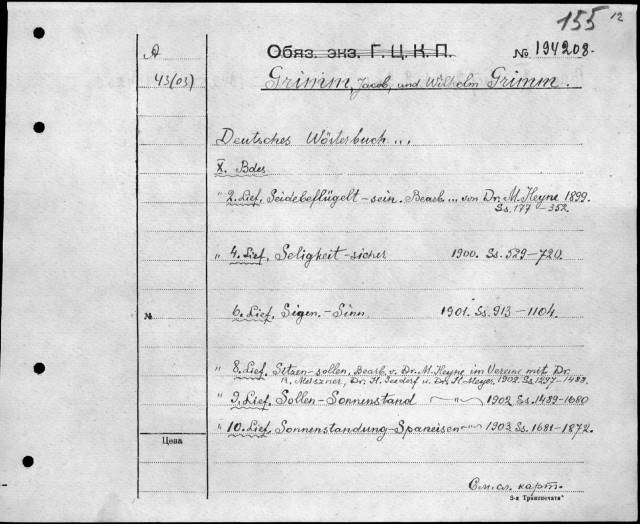 155 12
A
Обяз. экз. Г.Ц.К.П. № 194208.
43(03)
Grimm, Jacob, und Wilhelm Grimm.
Deutsches Wörterbuch...
X. Bdes
" 2. Lief. Seidebeflügelt – sein. Bearb... von Dr. M. Heyne 1899.
Ss. 177 – 352.
" 4. Lief. Seligkeit – sicher 1900. Ss. 529 – 720.
№ 6. Lief. Sigen. – Sinn 1901. Ss. 913 – 1104.
" 8. Lief. Sitzen – sollen. Bearb. v. Dr. M. Heyne im Vereine mit Dr.
R. Meiszner, Dr. H. Seedorf u. Dr. H. Meyer 1902. Ss. 1297 – 1488.
" 9. Lief. Sollen – Sonnenstand —"— 1902 Ss. 1489 – 1680
" 10. Lief. Sonnenstandung – Spaneisen —"— 1903 Ss. 1681 – 1872.
Цена
См. сл. карт.
3-я Транспечать"